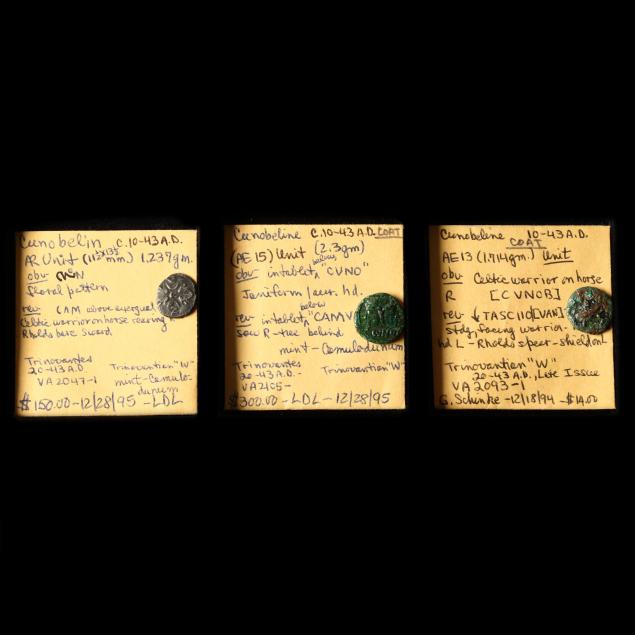 Cunobelin C.10-43 A.D.
AR Unit (11½x13½ mm) 1.237gm.
obv
floral pattern
rev CAM above exergual
Celtic warrior on horse rearing
R holds bare Sword
Trinovantes
20-43 A.D. Trinovantian "W"
VA 2047-1 mint-Camulo-
dunum
$150.00-12/28/95 -LDL
Cunobeline C.10-43 A.D. COAT
(AE 15) Unit (2.3gm)
below
obv in tablet, "CVNO"
Janiform laur. hd.
below
rev in tablet, "CAMV
sow R - tree behind
mint - Camulodunum
Trinovantes
20-43 A.D. Trinovantian "W"
VA2105-
$300.00 - LDL - 12/28/95
Cunobeline 10-43 A.D.
COAT
AE13 (1.914gm.) Unit
obv Celtic warrior on horse
R [CVNOB]
rev TASCIIO[VAN]
stdg. facing warrior
hd L - R holds spear - shield on L
Trinovantian "W"
20-43 A.D., Late Issue
VA 2093-1
G. Schinke -12/18/94 -$19.00